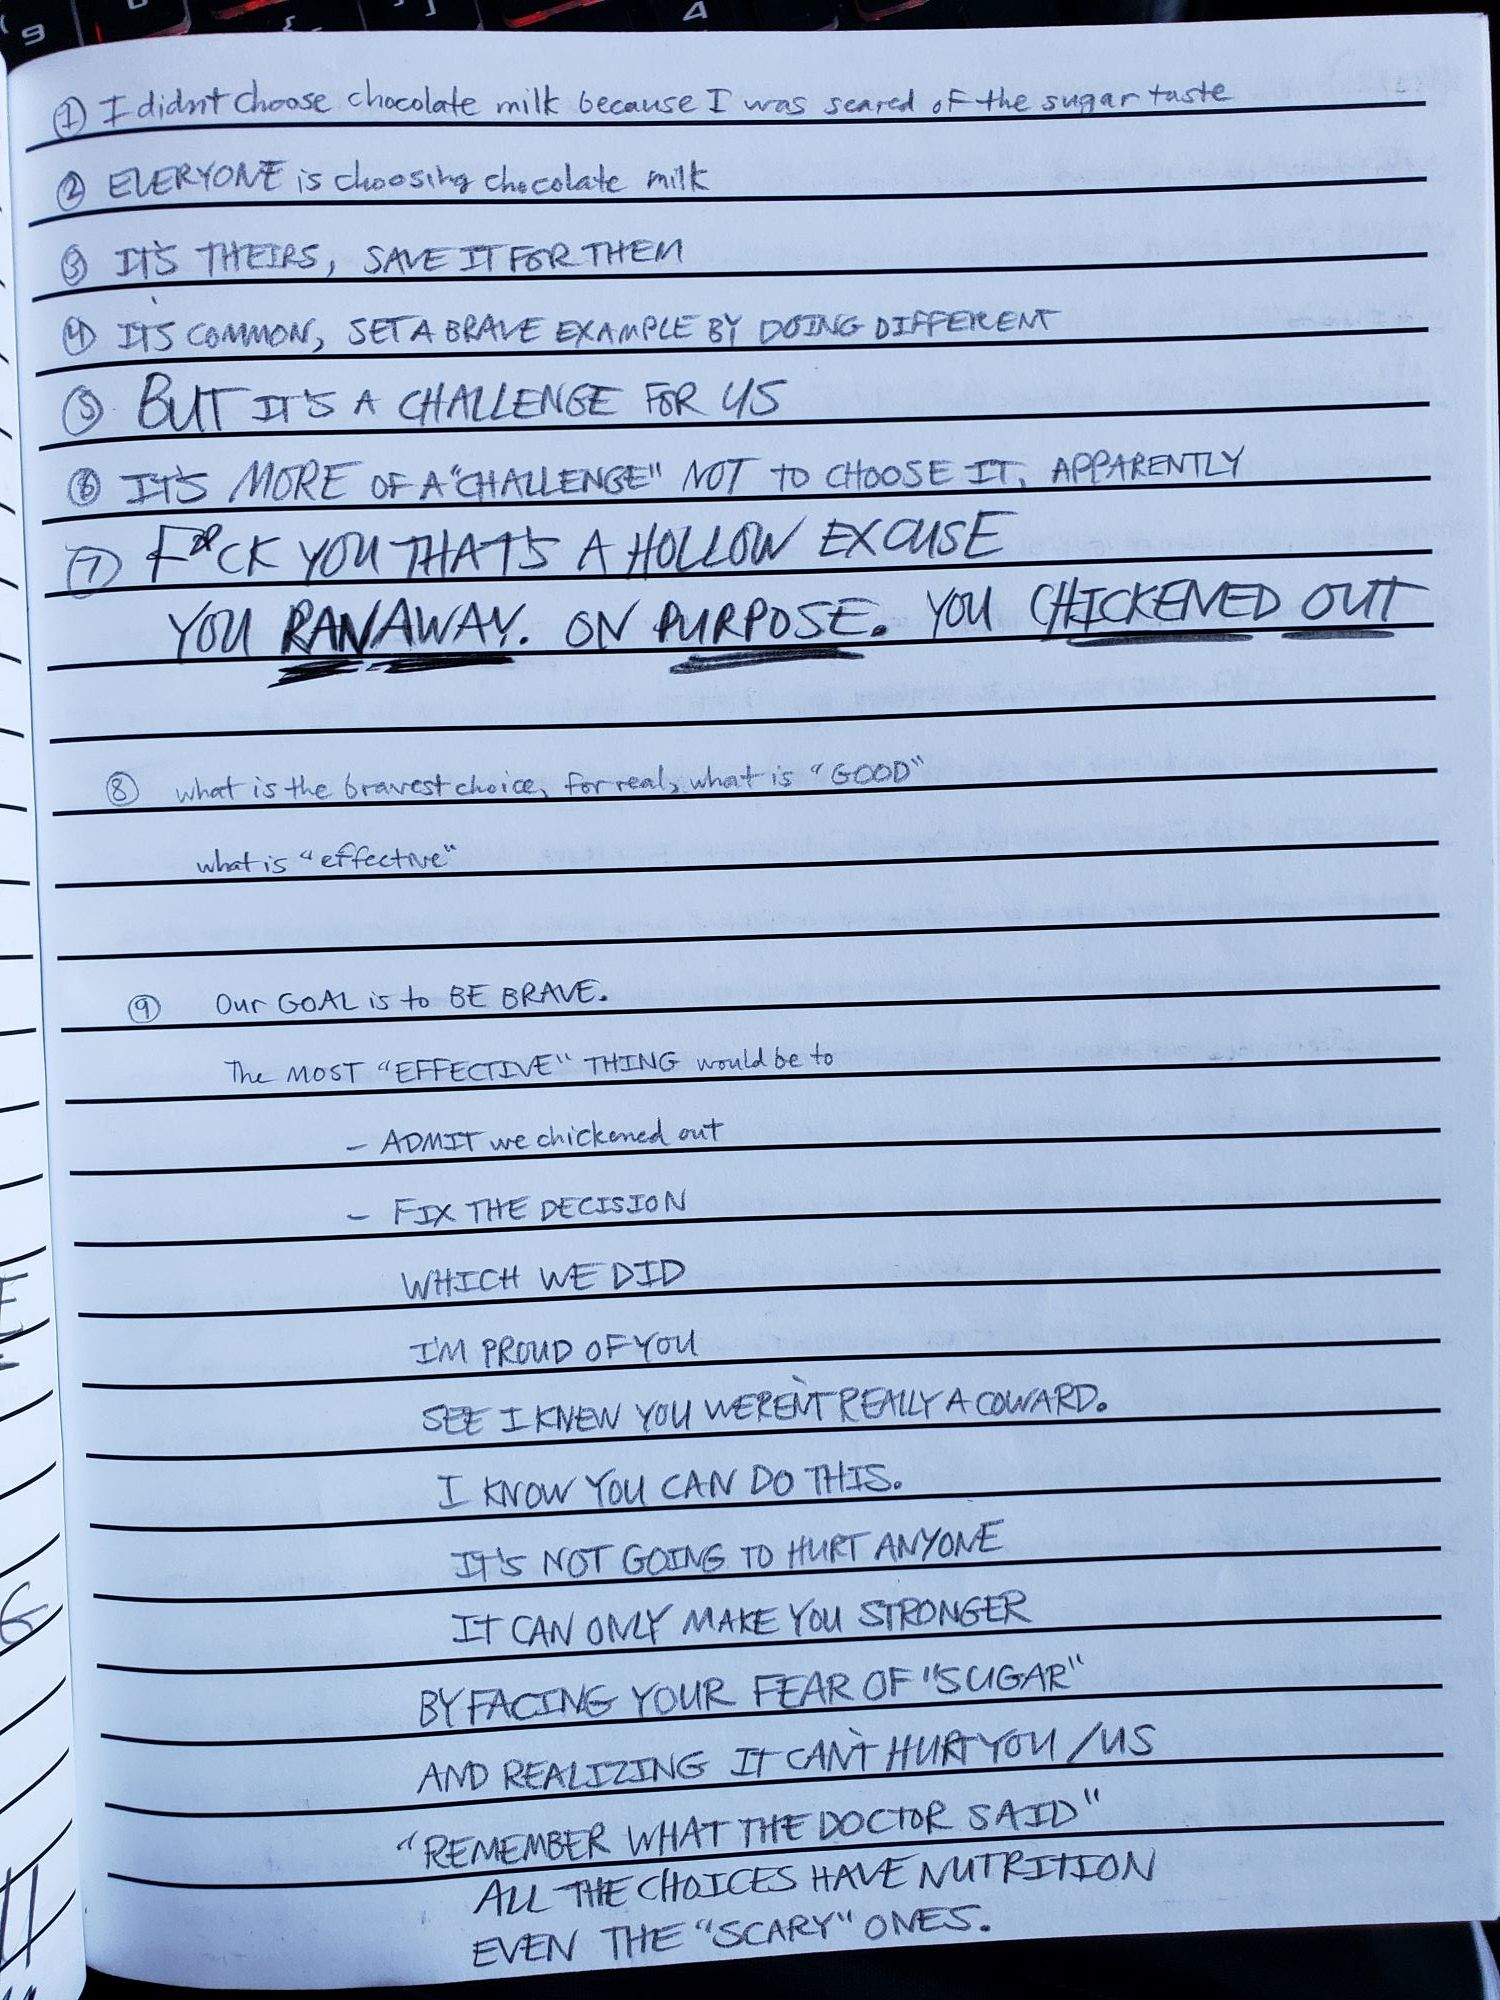 ① I didn't choose chocolate milk because I was scared of the sugar taste
② EVERYONE is choosing chocolate milk
③ IT'S THEIRS, SAVE IT FOR THEM
④ IT'S COMMON, SET A BRAVE EXAMPLE BY DOING DIFFERENT
⑤ BUT IT'S A CHALLENGE FOR US
⑥ IT'S MORE OF A "CHALLENGE" NOT TO CHOOSE IT, APPARENTLY
⑦ F*CK YOU THAT'S A HOLLOW EXCUSE
YOU RAN AWAY. ON PURPOSE. YOU CHICKENED OUT
⑧ what is the bravest choice, for real, what is "GOOD"
what is "effective"
⑨ Our GOAL is to BE BRAVE.
The MOST "EFFECTIVE" THING would be to
- ADMIT we chickened out
- FIX THE DECISION
WHICH WE DID
I'M PROUD OF YOU
SEE I KNEW YOU WEREN'T REALLY A COWARD.
I KNOW YOU CAN DO THIS.
IT'S NOT GOING TO HURT ANYONE
IT CAN ONLY MAKE YOU STRONGER
BY FACING YOUR FEAR OF "SUGAR"
AND REALIZING IT CAN'T HURT YOU/US
"REMEMBER WHAT THE DOCTOR SAID"
ALL THE CHOICES HAVE NUTRITION
EVEN THE "SCARY" ONES.